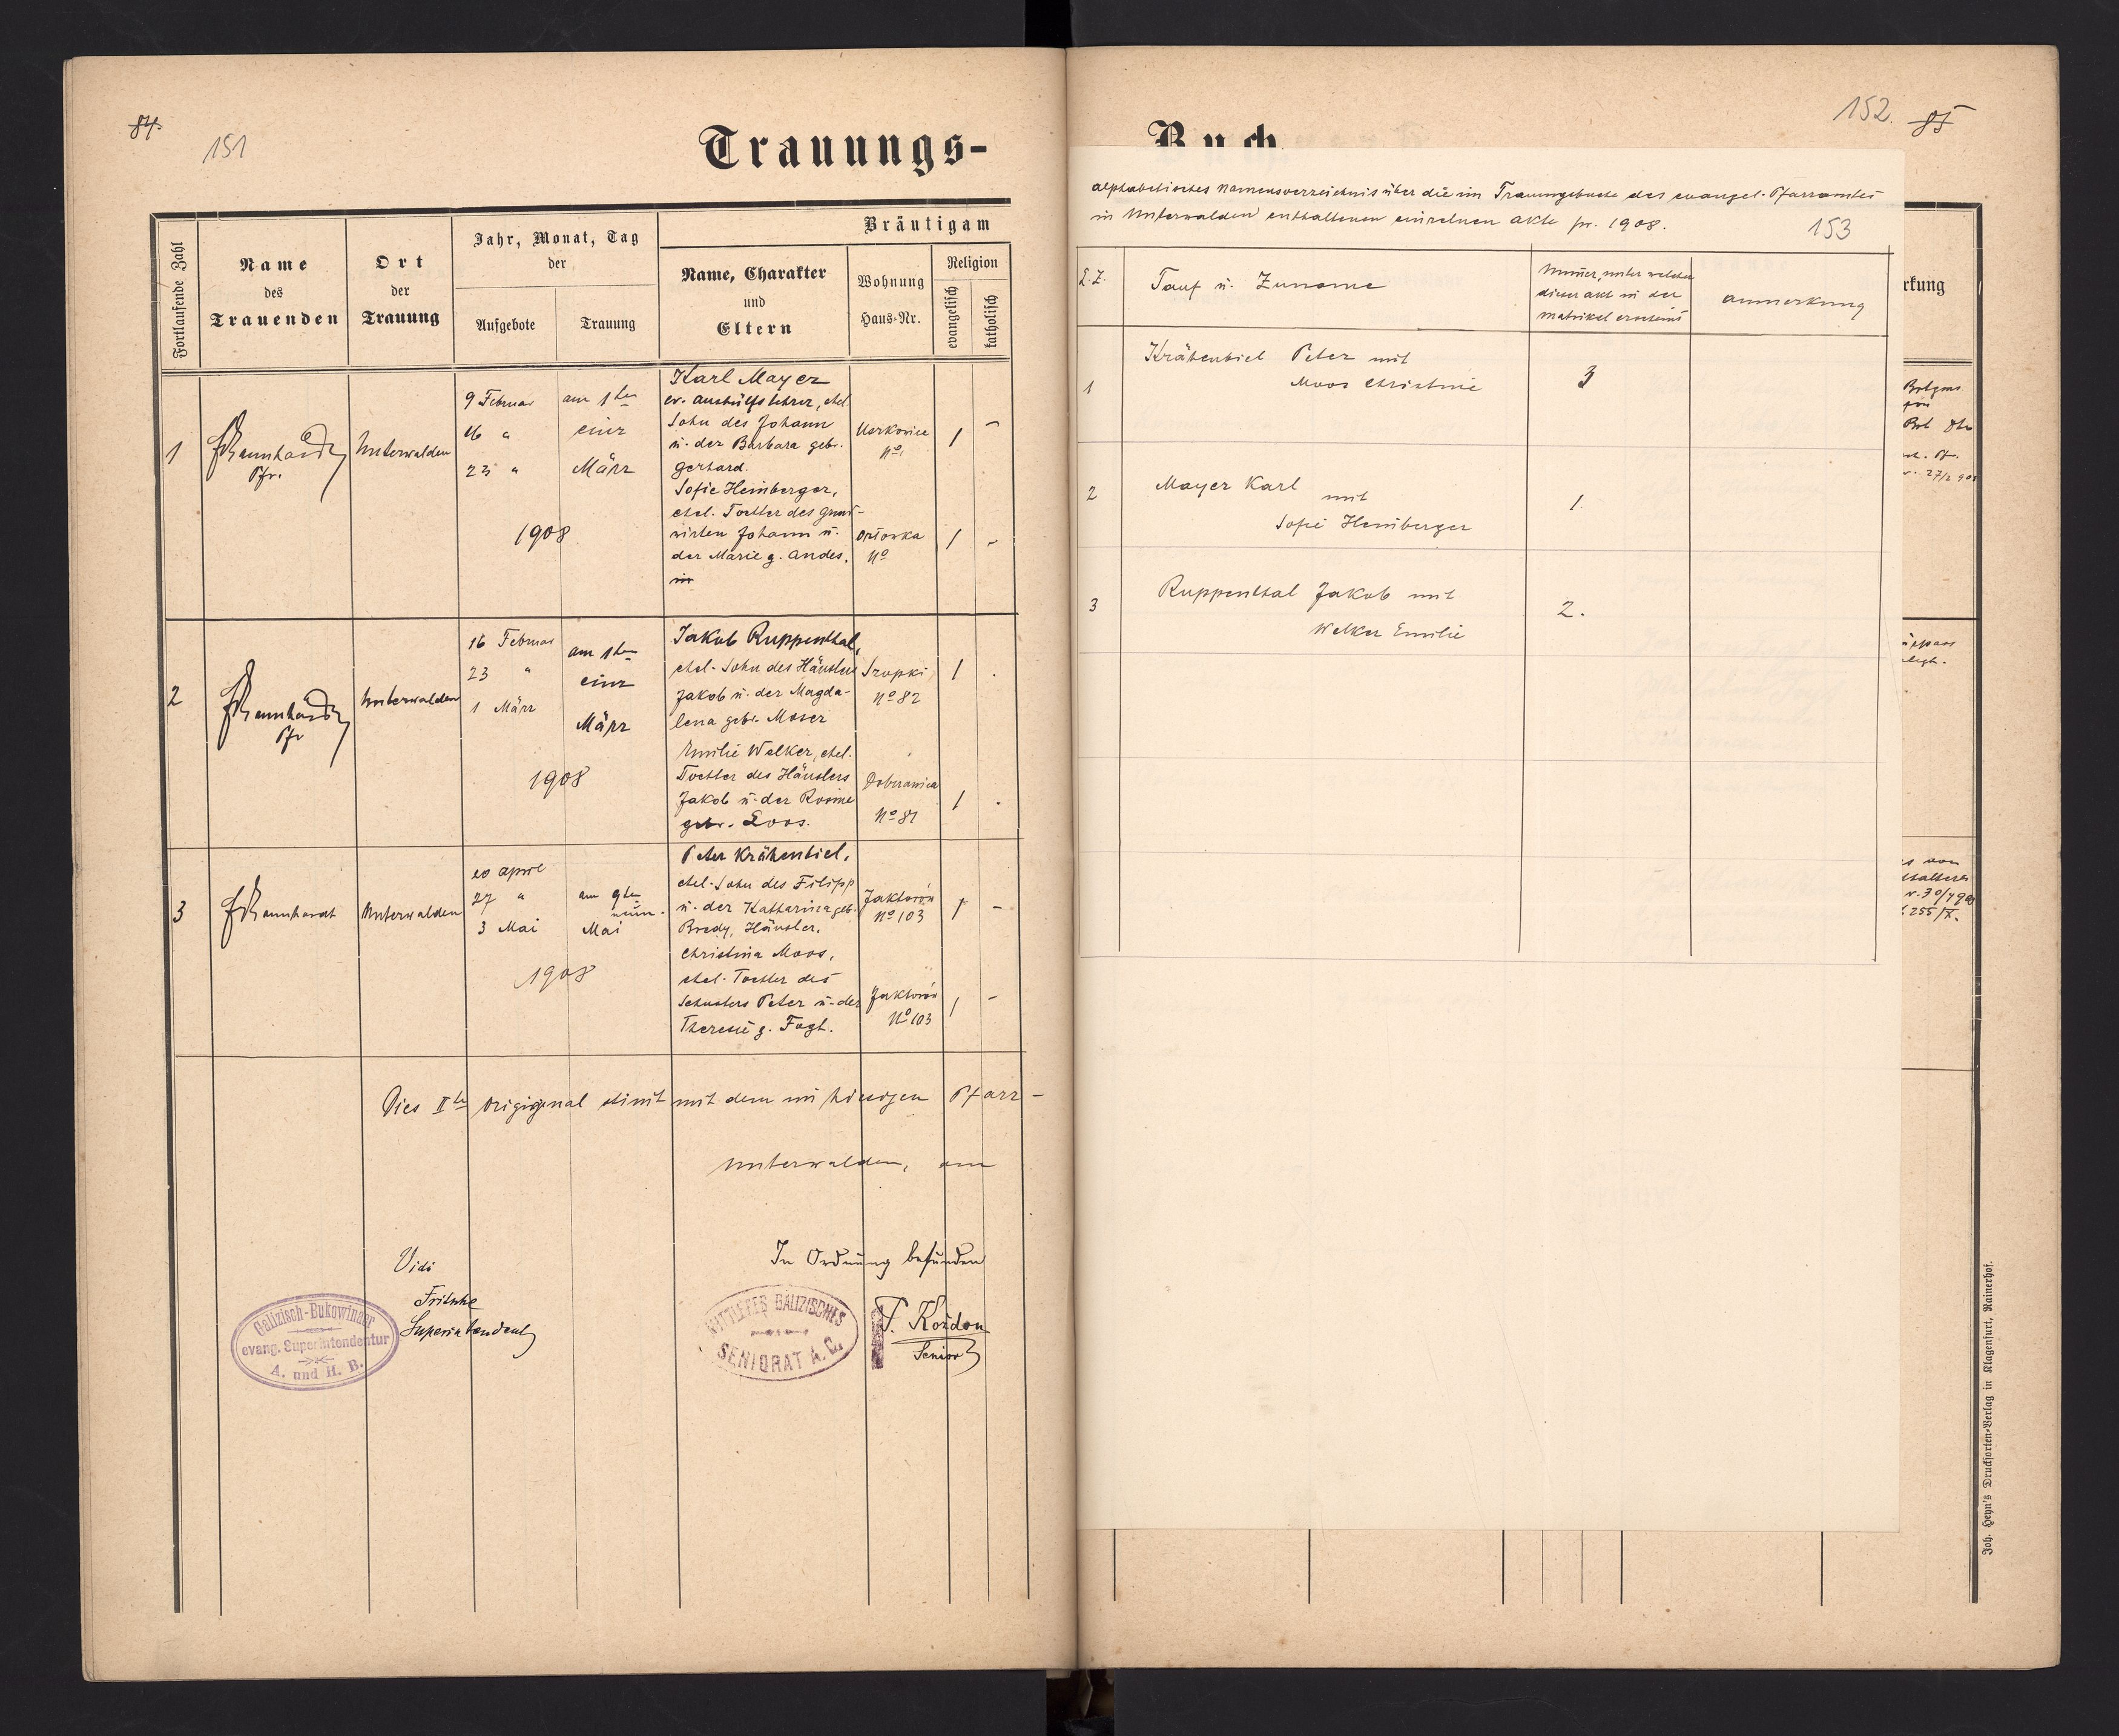 84.
151
Trauungs-
Fortlaufende Zahl
Name
des
Trauenden
Ort
der
Trauung
Jahr, Monat, Tag
der
Aufgebote
Trauung
Bräutigam
Name, Charakter
und
Eltern
Wohnung
Haus-Nr.
Religion
evangelisch
katholisch
1
Pfr.
Unterwalden
9 Februar
16 "
23 "
am 1ten
einz
März
1908
Karl Mayer
ev. Aushülfslehrer, ehel.
Sohn des Johann
u. der Barbara geb.
Gerhard.
Sofie Heinberger,
ehel. Tochter des Grund-
wirten Johann u.
der Marie g. Andes.
No
1
-
No
1
-
2
Pfr
Unterwalden
16 Februar
23 "
1 März
am 1ten
einz
März
1908
Jakob Ruppenthal,
ehel. Sohn des Häuslers
Jakob u. der Magda-
lena geb. Moser
Emilie Welker, ehel.
Tochter des Häuslers
Jakob u. der Rosine
geb. Loos.
Szopki
No 82
1
.
Dobranica
No 81
1
.
3
Unterwalden
20 April
27 "
3 Mai
am 9ten
neun-
Mai
1908
Peter Krähenbiel,
ehel. Sohn des Filipp
u. der Katharina geb.
Bredy, Häusler.
Christina Moos,
ehel. Tochter des
Schusters Peter u. der
Theresie g. Fogt.
Jaktorów
No 103
1
-
Jaktorów
No 103
1
-
Dies IIte Origiginal stimt mit dem im hiesigen Pfarr-
Unterwalden, am
Vidi
Fritsche
Superintendent
Galizisch-Bukowinaer
evang. Superintendentur
A. und H. B.
In Ordnung befunden
MITTLERES GALIZISCHES
SENIORAT A. C.
F. Koždon
Senior
Buch
152.
85
Alphabetisches Namensverzeichnis über die im Trauungsbuche des evangel. Pfarramtes
in Unterwalden enthaltenen einzelnen Akte pr. 1908.
153
L.Z.
Tauf u. Zuname
Numer, unter welcher
dieser Akt in der
Matrikel erscheint
Anmerkung
1
Krähenbiel Peter mit
Moos Christine
3
2
Mayer Karl mit
Sofie Heinberger
1.
3
Ruppenthal Jakob mit
Welker Emilie
2.
rkung
Joh. Heyn's Drucksorten-Verlag in Klagenfurt, Rainerhof.